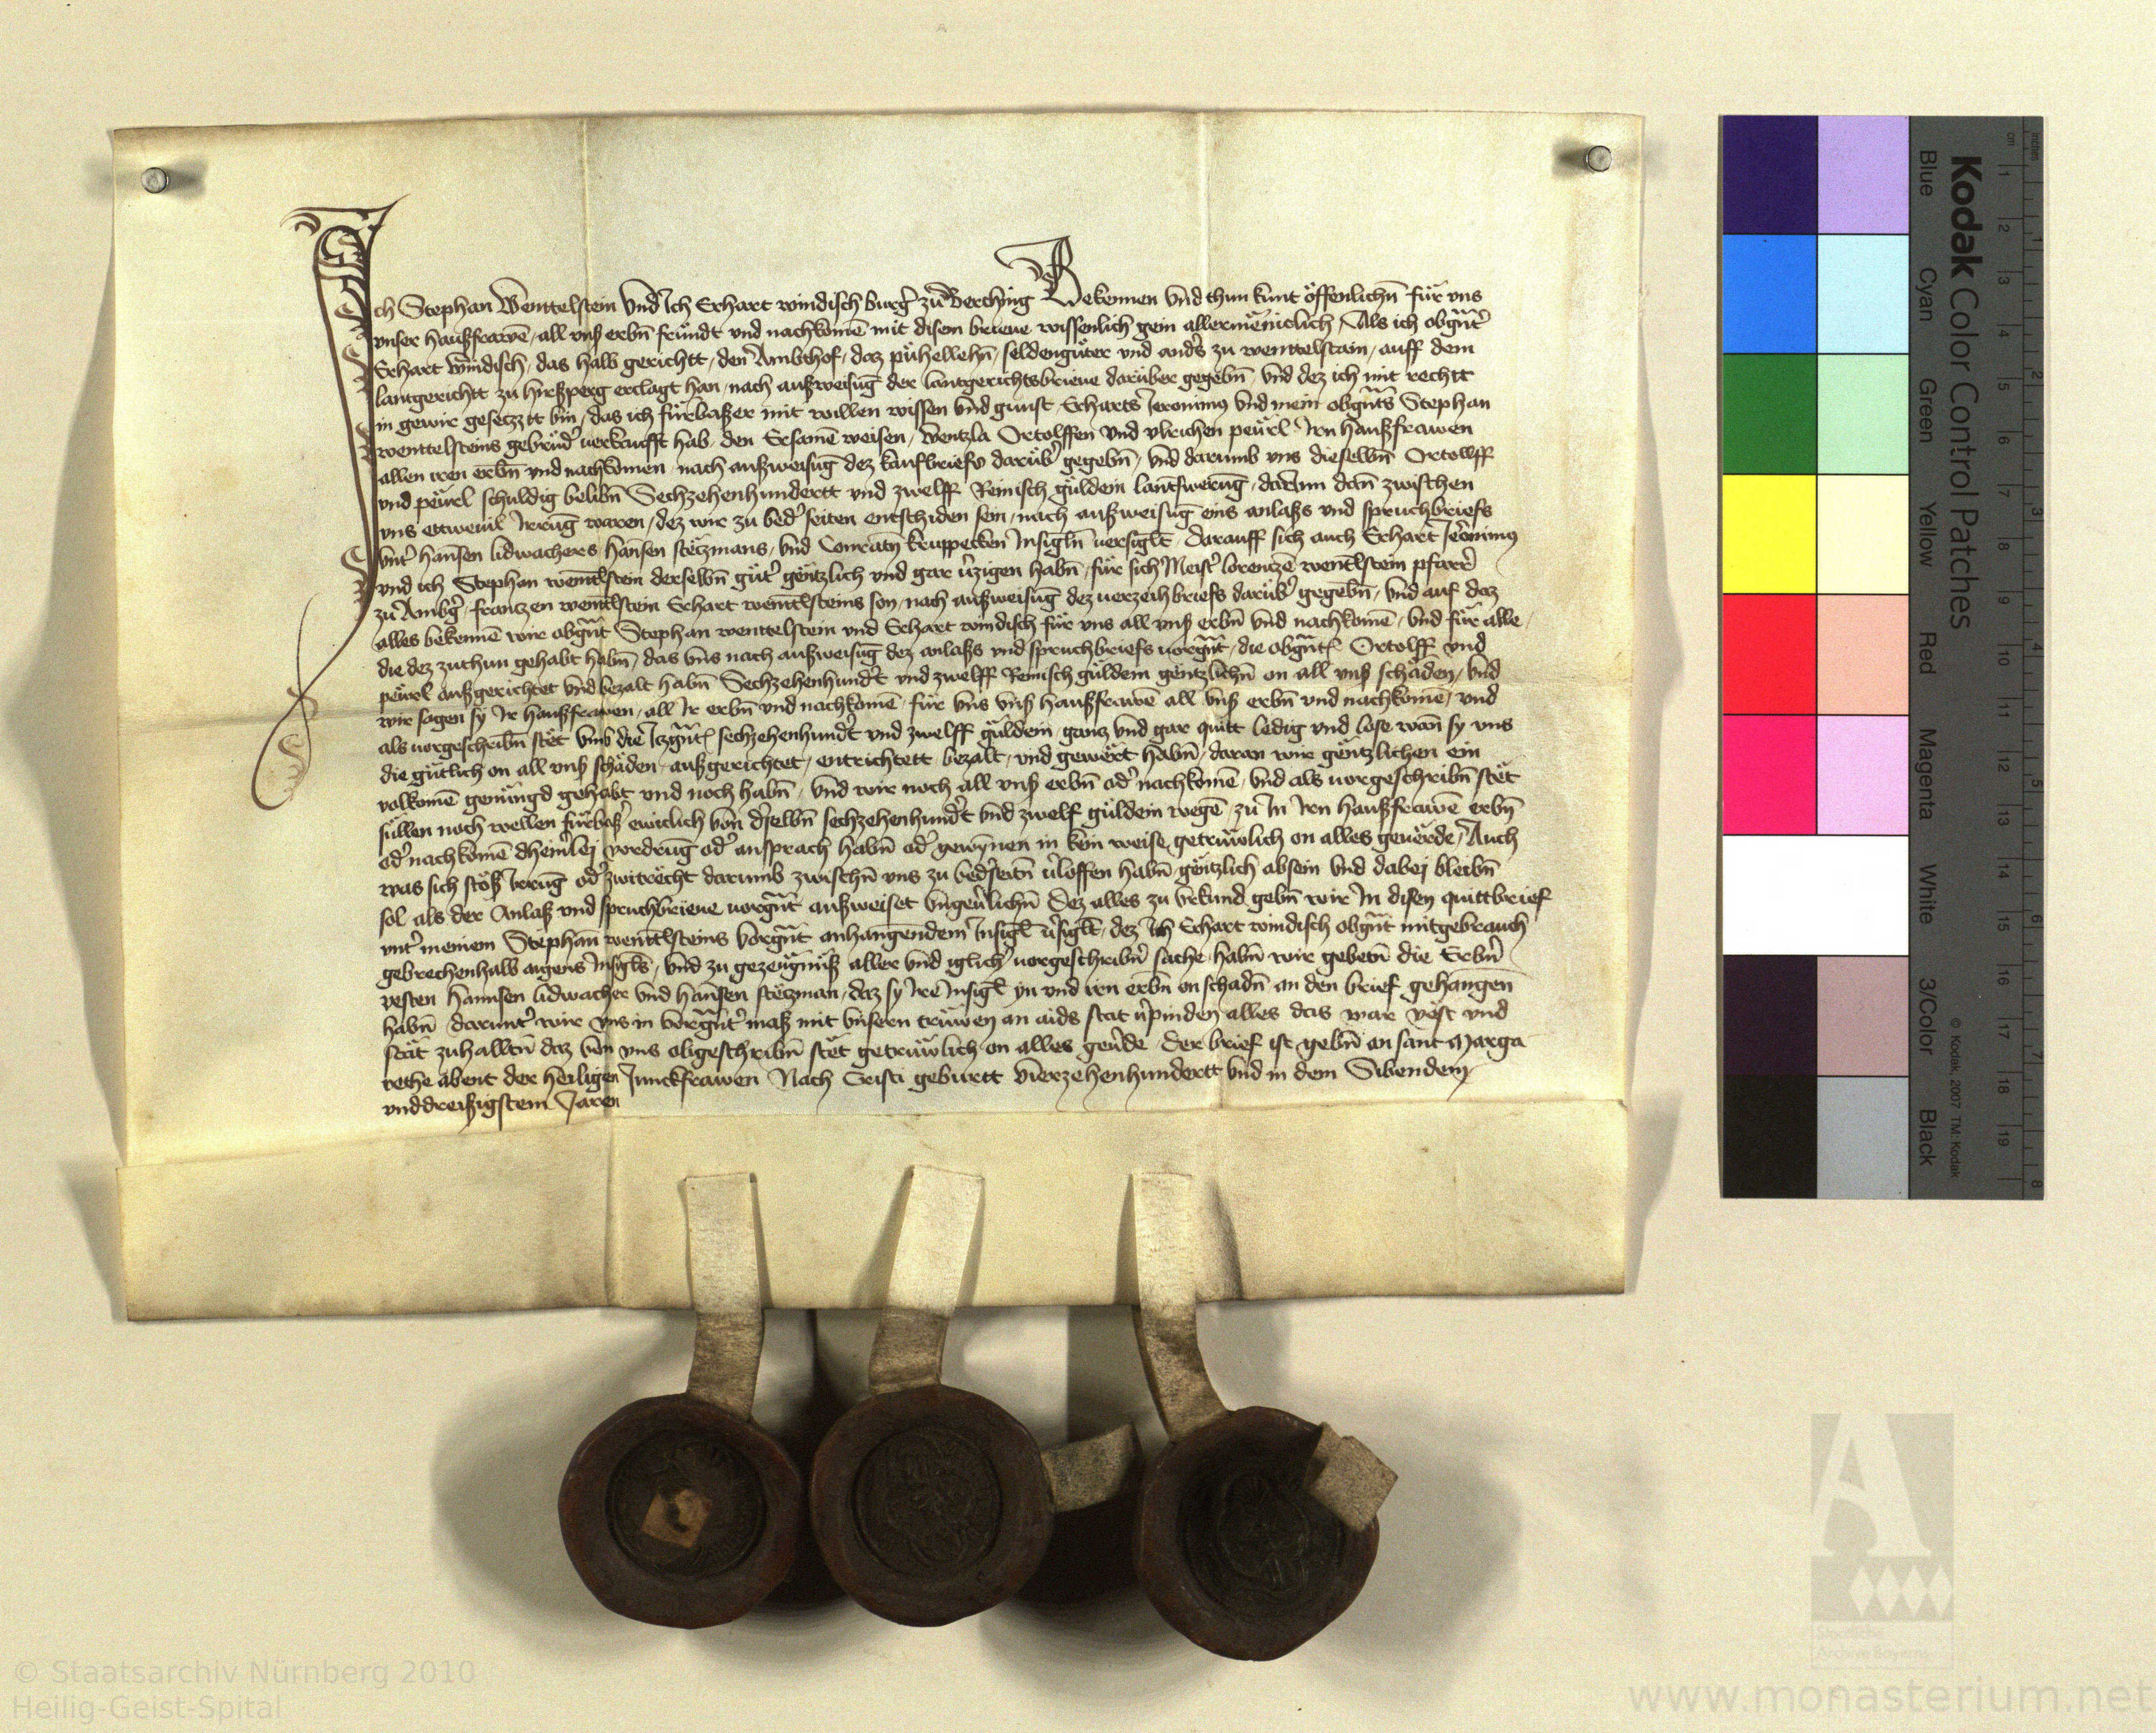 Ich Stephan Wenttelstein vnd Ich Erhart windisch burg̉ zu Berching Bekennen vnd thun kunt öffenlichn̄ für vns
vnser haußfrawē, all vnß erbn̄ fründt vnd nachkomē mit disem brieue wissenlich gein allermēniclich, Als ich obgn̄t
Erhart windisch, das halb gerichtt, den Ambthof, daz pühellehn̄, seldengüter vnd and̉s zu wenttelstain, auff dem
lantgerichtt zu hirßperg erclagt han, nach außweisūg der lantgerichtsbrieue darüber gegebn̄, vnd dez ich mit rechtt
in gewir gesetztt bin, das ich fürbaßer mit willen wissen vnd gunst Erharts Jeronimꝰ vnd mein obgn̄ts Stephan
wenttelsteins gebrüd̉ uerkaufft hab, den Ersamē weisen, Wentzla Ortolffen vnd vlrichen peürl Irn haußfrawen
allen iren erbn̄ vnd nachkomen, nach außweisūg dez kaufbriefs darüb̉ gegebn̄, vnd darumb vns dieselbn̄ Ortollff
vnd peürl schuldig belibn̄ Sechzehenhundertt vnd zwelff Reinisch guldein lantswerūg, darinn dan̄ zwischen
vns ettweuil Irrūg waren, dez wir zu bed̉ seiten entschiden sein, nach außweisūg eins anlaßs vnd spruchbriefs
vnt̉ hansen lidwachers hansen stetzmans, vnd Conratz kruppecken Insigln̄ uersiglt, darauff sich auch Erhart Jeronimꝰ
vnd ich Stephan wentlstein derselbn̄ güt̉ gentzlich vnd gar v̉zigen habn̄, für sich Meist̉ lorentzē wentlstein pfarr̉
zu Ambg̉, frantzen wentlstein Erhart wentlsteins son, nach außweisūg dez uerzeihbriefs darüb̉ gegebn̄, vnd auf daz
alles bekennē wir obgn̄t Stephan wenttelstein vnd Erhart windisch für vns all vnß erbn̄ vnd nachkomē, vnd für alle,
die dez zuthun gehabt habn̄, das vns nach außweisūg dez anlaßs vnd spruchbriefs uorgn̄t, die obgn̄tꝭ Ortolff vnd
peürl außgerichtet vnd bezalt habn̄ Sechzehenhund̉t vnd zwelff Reinisch guldein gentzlichn̄ on all vnß schäden, vnd
wir sagen sy Ir haußfrawen, all Ir erbn̄ vnd nachkomē, für vns vnß haußfrawē all vnß erbn̄ vnd nachkomē, vnd
als uorgeschribn̄ stet vmb die Itzgn̄tꝭ sechzehenhund̉t vnd zwelff guldein, gantz vnd gar quitt ledig vnd lose wan̄ sy vns
die gütlich on all vnß schäden außgerichtet, entrichtett bezalt, vnd gewert habn̄, daran wir gentzlichen ein
volkomē genüngd gehabt vnd noch habn̄, vnd wir noch all vnß erbn̄ od̉ nachkomē, vnd als uorgeschribn̄ stet
süllen noch wellen fürbaß̉ ewiclich von d̉selbn̄ sechzehenhund̉t vnd zwelf guldein wegē, zu In Irn haußfrawē erbn̄
od̉ nachkomē dhein̉lej vordrūg od̉ ansprach habn̄ od̉ gewynnen in kein weise, getrüwlich on alles geuerde, Auch
was sich stöß Irrūg od̉ zwitrecht darumb zwischn̄ vns zu bed̉seitn̄ v̉loffen habn̄ gentzlich absein vnd dabej bleibn̄
sol als der Anlaß vnd spruchbrieue uorgn̄t außweiset vngeu̓lichn̄ Dez alles zu vrkund gebn̄ wir In disen quittbrief
vnt̉ meinem Stephan wentlsteins vorgn̄t anhangendem Insigl v̉siglt, dez Ich Erhart windisch obgn̄t mitgebrauch
gebrechenhalb aigens Insigls, vnd zu gezeügnüß aller vnd iglich̉ uorgeschribn̄ sache habn̄ wir gebetn̄ die Erbn̄
vesten hannsen lidwacher vnd hansen stetzman, daz sy Ire Insigl yn vnd irn erbn̄ on schadn̄ an den brief gehangen
habn̄ darunt̉ wir vns in vorgn̄t̉ maß mit vnsern trüwen an aids stat v̉pinden alles das war vest vnd
stät zuhalltn̄ daz von vns obgeschribn̄ stet getrüwlich on alles geu̓de Der brief ist gebn̄ an sant Marga
rethe abent der heiligen Junckfrawen Nach Cristi geburtt vierzehenhundertt vnd in dem Sibendem
vnddreißigstem Jaren
Kodak Color Control Patches
Blue Cyan Green Yellow Red Magenta White 3/Color Black
© Kodak, 2007 TM: Kodak
inches 1 2 3 4 5 6 7 8
cm 1 2 3 4 5 6 7 8 9 10 11 12 13 14 15 16 17 18 19
© Staatsarchiv Nürnberg 2010
Heilig-Geist-Spital
Staatliche
Archive Bayerns
www.monasterium.net